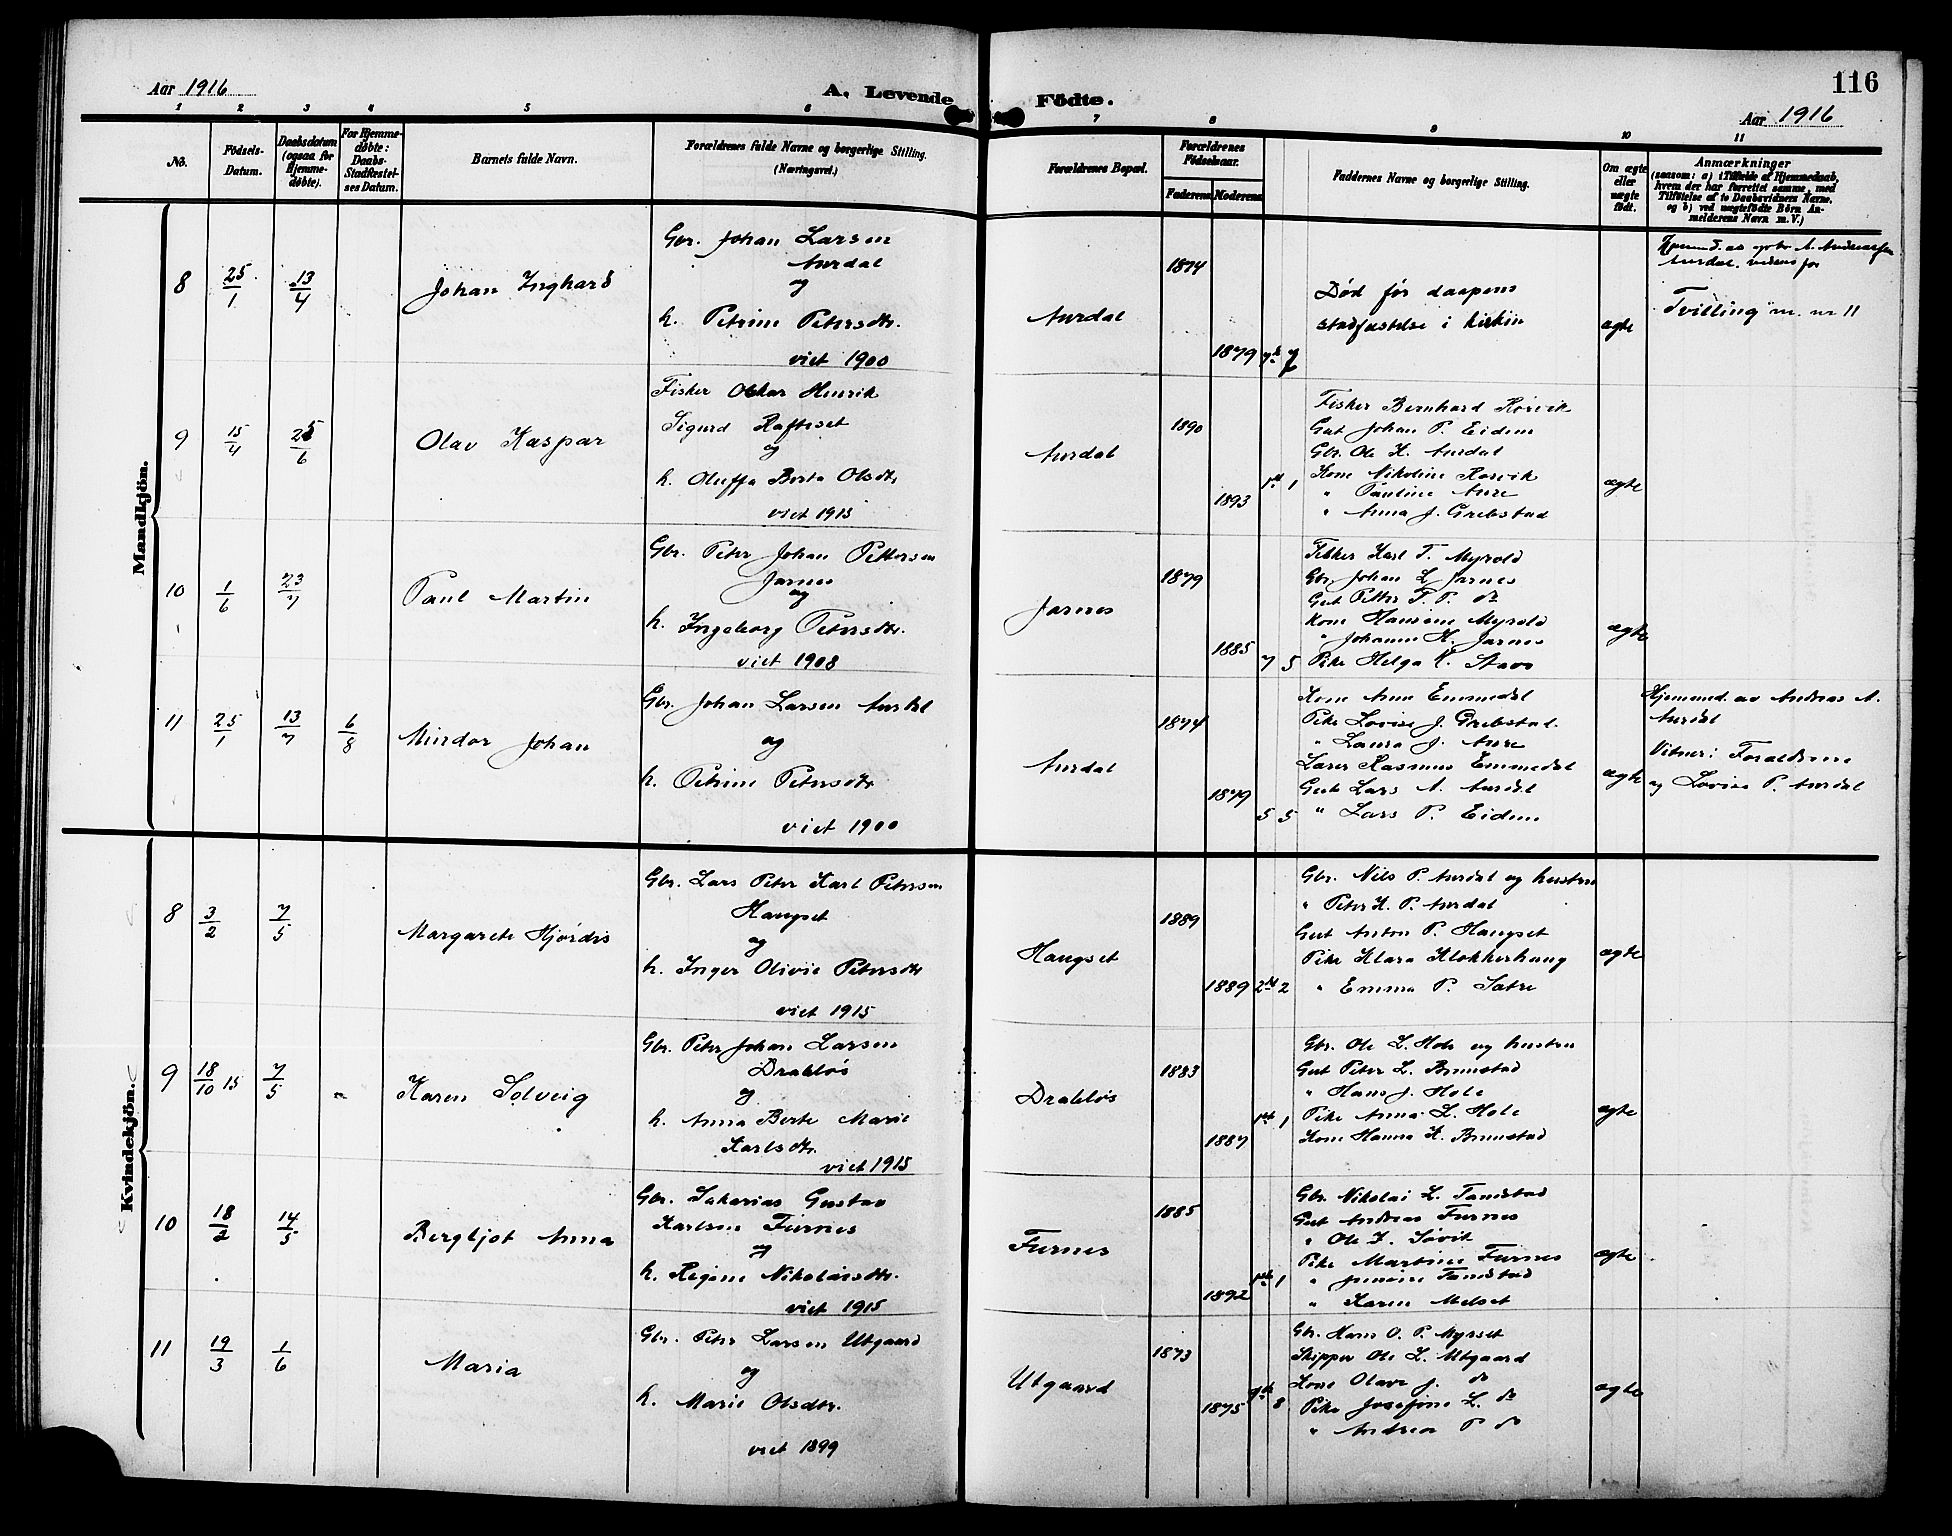 116
Aar 1916
A. Levende Födte.
Aar 1916
1 2 3 4 5 6 7 8 9 10 11
No.
Födsels-Datum.
Daabsdatum (ogsaa for Hjemme-döbte).
For Hjemme-döbte: Daabs-Stadfæstel-ses Datum.
Barnets fulde Navn.
Forældrenes fulde Navne og borgerlige Stilling.
(Næringsvei.)
Forældrenes Bopæl.
Forældrenes Födselsaar.
Faderens Moderens
Faddernes Navne og borgerlige Stilling.
Om ægte eller uægte födt.
Anmærkninger
(saasom: a) i Tilfælde af Hjemmedaab,
hvem der har forrettet samme, med
Tilföielse af to Daabsvidners Navne,
og b) ved uægtefödte Börn An-
melderens Navn m. V.)
Mandkjön.
8 25/1 13/4 Johan Inghard
Gbr. Johan Larsen
Aurdal
og
h. Petrine Petersdtr.
viet 1900
Aurdal 1874 1879 7
Død før daapens
stadfæstelse i kirken
ægte
Aurdal.
Tvilling m. nr 11
9 15/4 25/6 Olav Kaspar
Fisker Oskar Henrik
Sigurd Hafteset
og
h. Oluffa Berte Olsdtr
viet 1915
Aurdal 1890 1893 1
Fisker Bernhard Rørvik
Gut Johan P. Eidem
Gbr. Ole K. Aurdal
Kone Nikoline Rørvik
" Pauline Aure
" Anna J. Grebstad
ægte
10 1/6 23/7 Paul Martin
Gbr. Peter Johan Pettersen
Jarnes
og
h. Ingeborg Petersdtr.
viet 1908
Jarnes 1879 1885 7 5
Fisker Karl T. Myrold
Gbr. Johan L. Jarnes
Gut Petter T. P. do
Kone Hansine Myrold
" Johanne K. Jarnes
Pike Helga K. Stave
ægte
11 25/1 13/7 6/8 Mindor Johan
Gbr. Johan Larsen Aurdal
og
h. Petrine Petersdtr
viet 1900
Aurdal 1874 1879 5 5
Kone Anne Emmedal
Pike Lovise J. Grebstad.
" Laura J. Aure
Lærer Rasmus Emmedal
Gut Lars A. Aurdal
" Lars P. Eidem
ægte
Hjemmed. av Andreas A.
Aurdal
Vitner: Forældrene
og Lovise P. Aurdal
Kvindekjön.
8 3/2 7/5 Margarete Hjørdis
Gbr. Lars Peter Karl Petersen
Haugset
og
h. Inger Olivie Petersdtr
viet 1915
Haugset 1889 1889 2
Gbr. Nils P. Aurdal og hustru
" Peter K. P. Aurdal
Gut Anton P. Haugset
Pike Klara Klokkerhaug
" Emma P. Satre
ægte
9 18/10 15 7/5 Karen Solveig
Gbr. Peter Johan Larsen
Drabløs
og
h. Anna Berte Marie
Karlsdtr.
viet 1915
Drabløs 1883 1887 1
Gbr. Ole L. Hole og hustru
Gut Peter L. Brunstad
" Hans J. Hole
Pike Anna L. Hole
Kone Hanna K. Brunstad
ægte
10 18/2 14/5 Bergljot Anna
Gbr. Sakarias Gustav
Karlsen Furnes
og
h. Regine Nikolaisdtr.
viet 1915
Furnes 1885 1892 1
Gbr. Nikolai L. Tandstad
Gut Andreas Furnes
" Ole K. Søvik
Pike Martine Furnes
" Tandstad
" Karen Melset
ægte
11 19/3 1/6 Maria
Gbr. Peter Larsen Utgaard
og
h. Marie Olsdtr.
viet 1899
Utgaard 1873 1875 8
Gbr. Hans O. P. Myrset
Skipper Ole L. Utgaard
Kone Olave J. do
Pike Josefine L. do
" Andrea P do
ægte